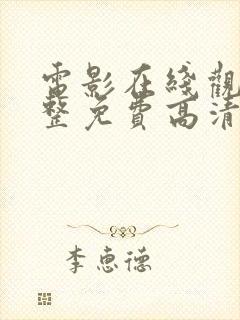 電影在綫觀
整免費高清
李惠德